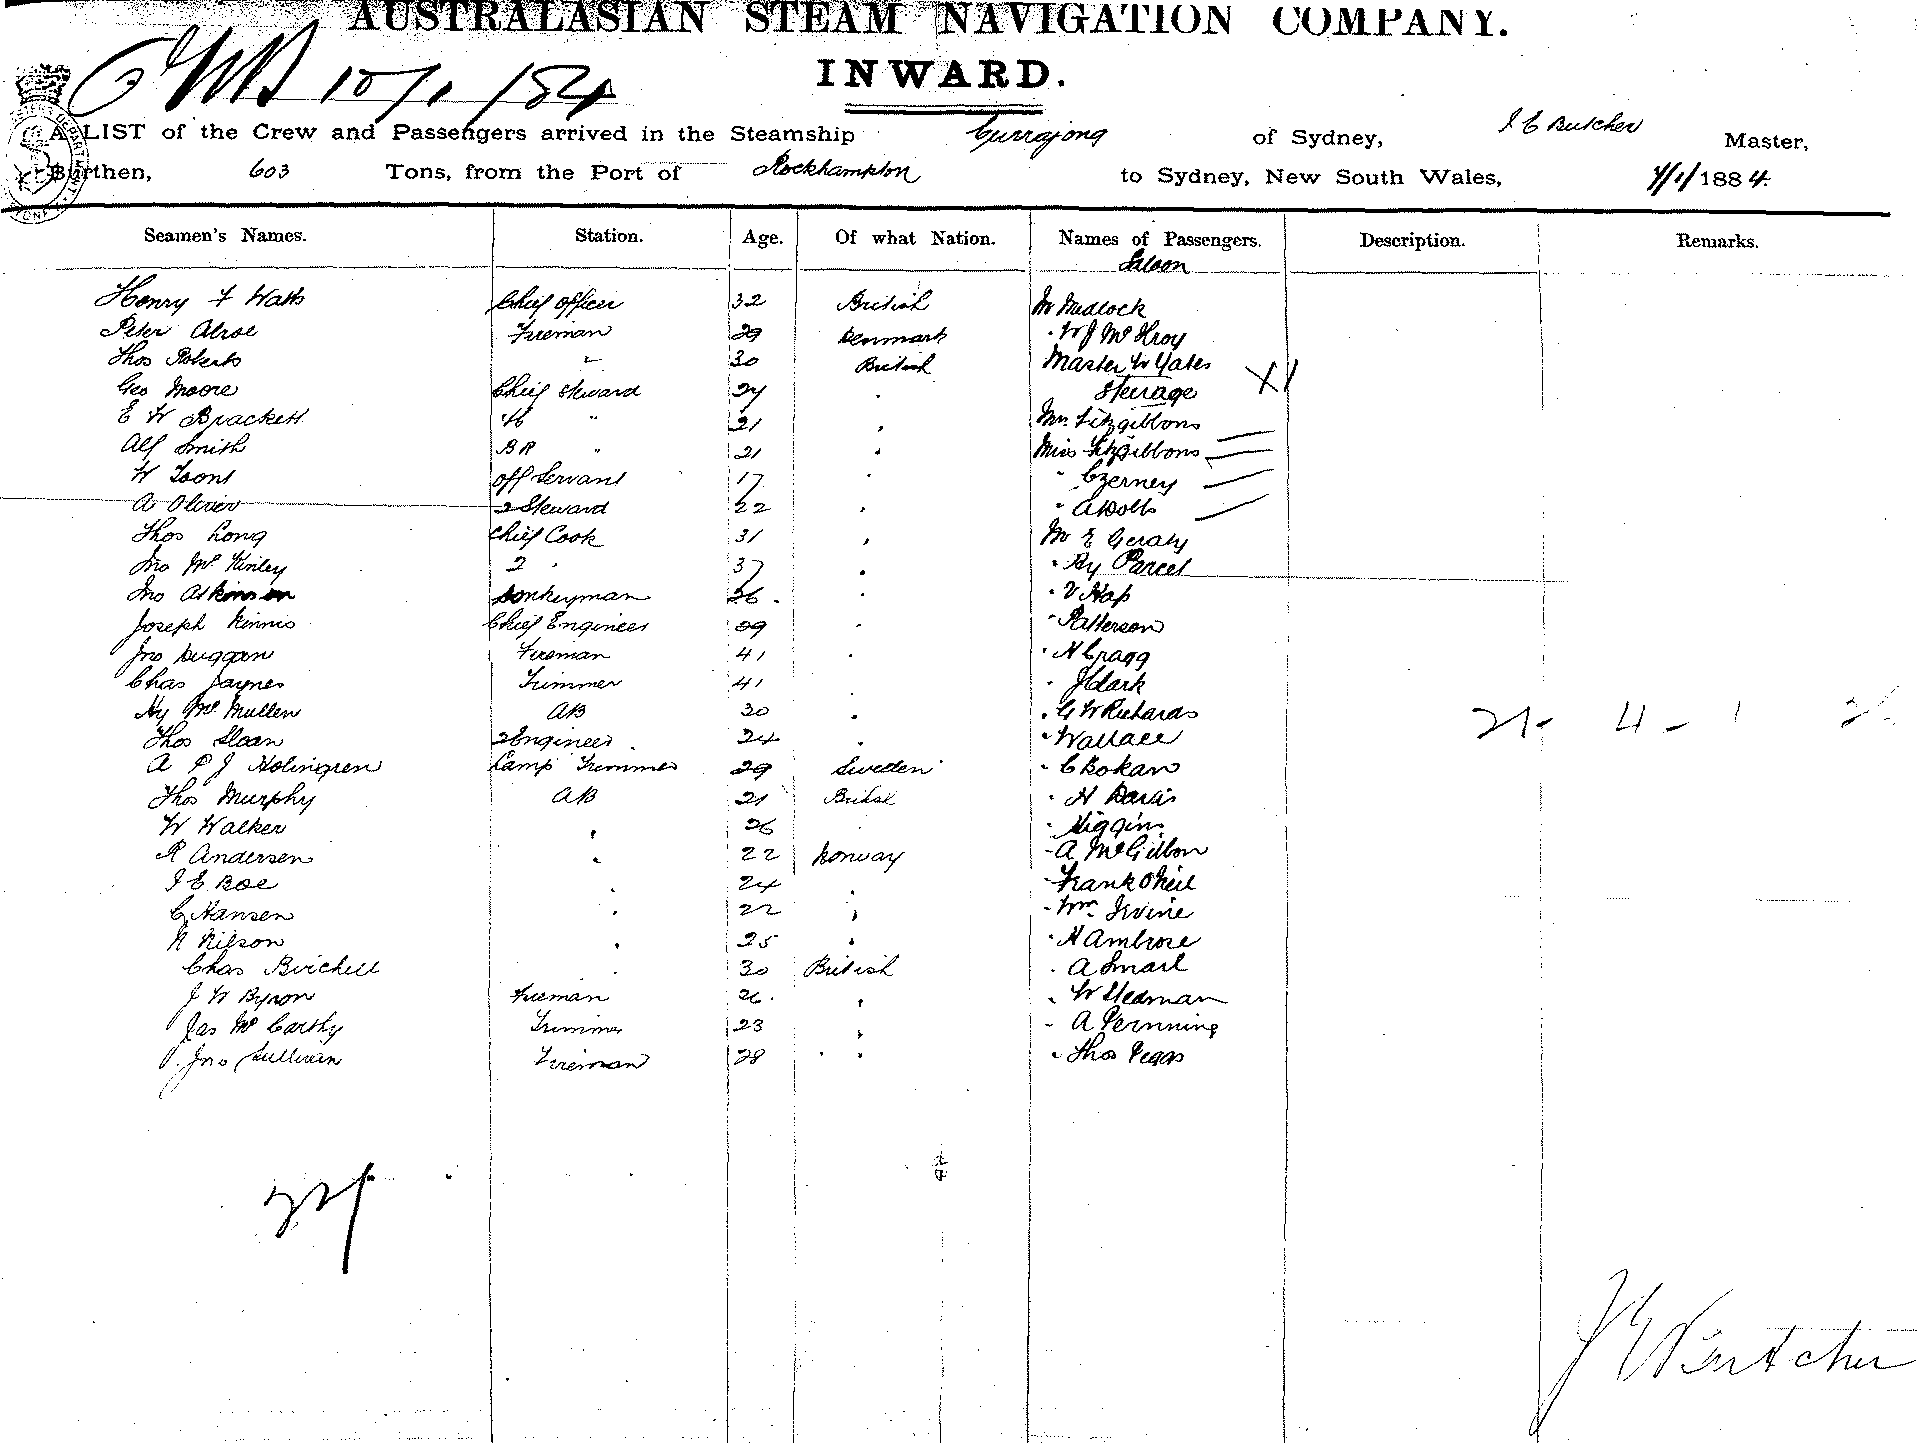 AUSTRALASIAN STEAM NAVIGATION COMPANY.
INWARD.
A LIST of the Crew and Passengers arrived in the Steamship Currajong of Sydney, J E Butcher Master,
Burthen, 603 Tons, from the Port of Rockhampton to Sydney, New South Wales, 1884.
Seamen's Names. Station. Age. Of what Nation. Names of Passengers. Description. Remarks.
Saloon
Henry F Watts Chief officer 32 British Mr Medlock
Peter Alroe Fireman 29 Denmark " W J McIlroy
Thos Roberts " 30 British Master W Yates
Geo Moore Chief Steward 24 " Steerage
E W Brackett " 21 " Mrs Fitzgibbons
Alf Smith BR " 21 " Miss Fitzgibbons
W Toons off Servant 17 " " Czerney
A Oliver 2 Steward 22 " "
Thos Long Chief Cook 31 " Mr E Geraty
Jno McKinley 2 " 37 " " Hy Parcel
Jno Atkinson Donkeyman 26 " " Hap
Joseph Kinnis Chief Engineer 39 " " Patterson
Jno Duggan Fireman 41 " " H Cragg
Chas Jaynes Trimmer 41 " " J Clark
Hy McMullen AB 30 " " G W Richards
Thos Sloan 2 Engineer 24 " " Wallace
A P J Holmgren Lamp Trimmer 29 Sweden " C Bokan
Thos Murphy AB 21 British " H Davis
W Walker " 26 " Higgins
R Andersen " 22 Norway " A McGibbon
J E Boe " 24 " " Frank O Neil
C Hansen " 22 " " Wm Irvine
N Nilson " 25 " " H Ambrose
Chas Birchell " 30 British " A Smail
J W Byron Fireman 26 " " W Stedman
Jas McCarthy Trimmer 23 " " A
Jno Sullivan Fireman 28 " " Thos Veggs
J E Butcher